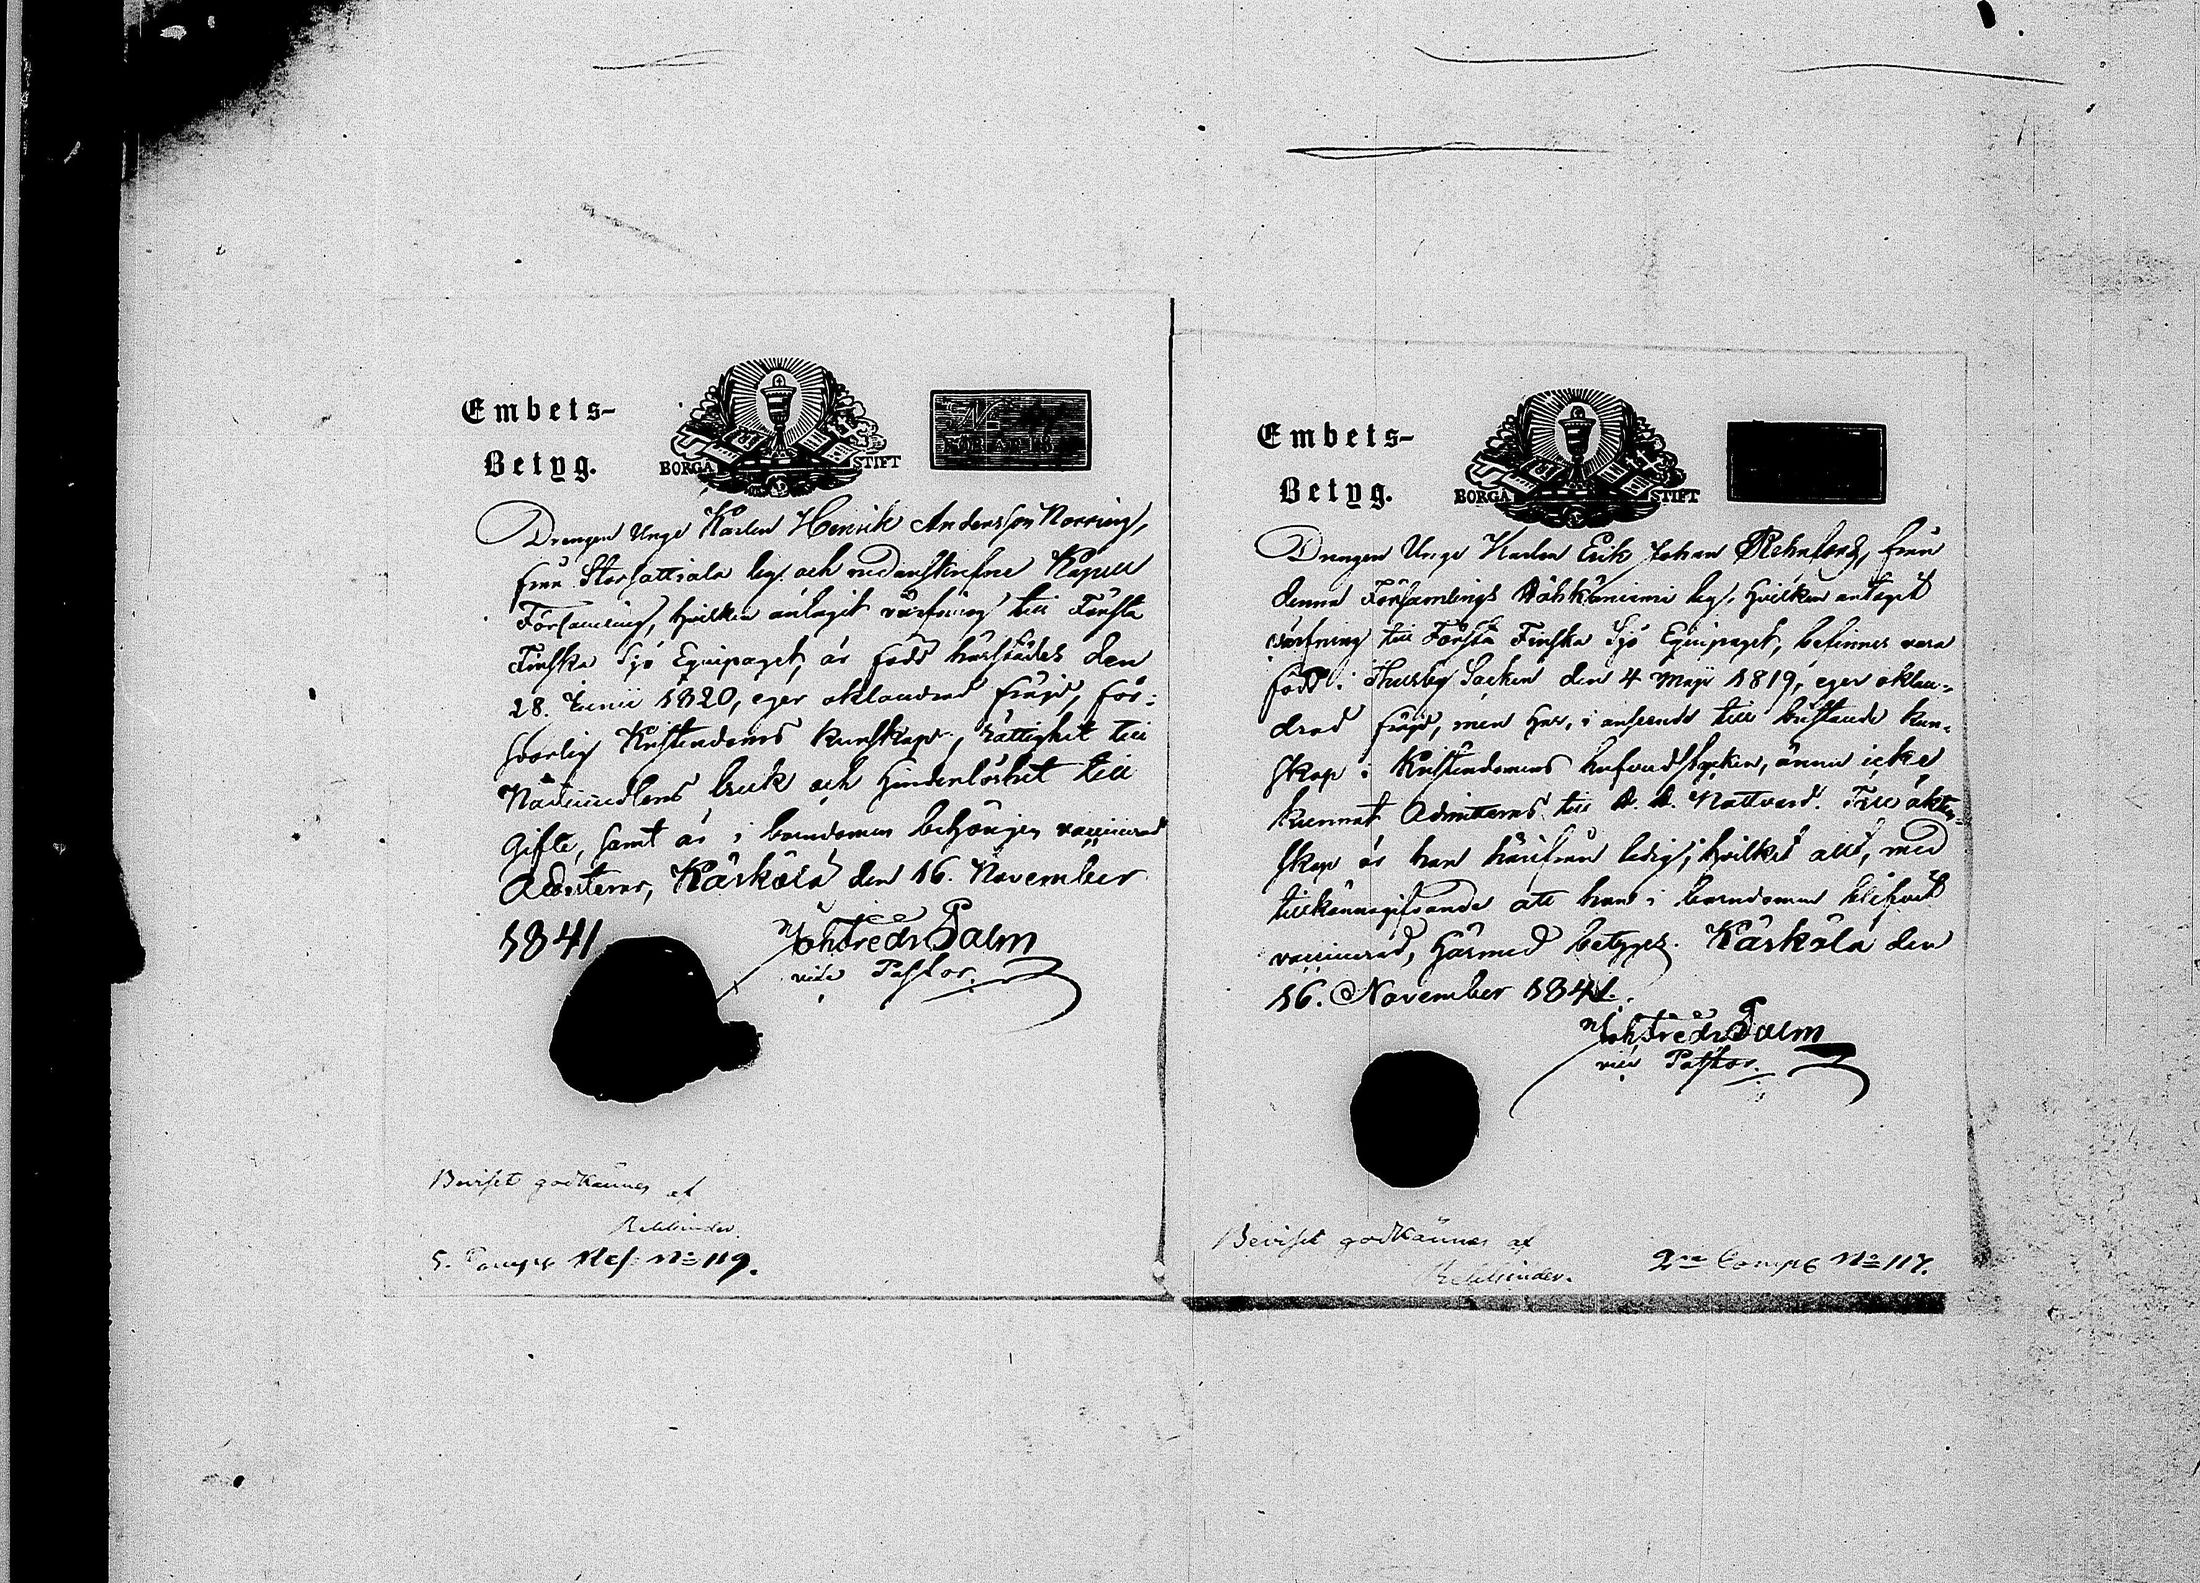 Embets-
Betyg.
BORGÅ STIFT
Drengen Unge Karlen Henrik Andersson Norring,
från Storsattiala by och nedanskrefne Kapell
Församling, hvilken antagit värfning till Första
Finska Sjö Equipaget, är född härstädes den
28. Junii 1820, eger oklandrad frägd, för-
svarlig Kristendoms kunskap, rättighet till
Nådemedlens bruk och hinderlöshet till
Gifte, samt är i barndomen behörigen vaccinerad
Attesteras, Kärkölä den 16. November
1841
Joh Fredr Palm
vice Pastor.
Beviset godkännes af
Rehbinder.
5. Comp. No 119.
Embets-
Betyg.
BORGÅ STIFT
Drengen Unge Karlen Erik Johan Rehnfors, från
denna Församlings by, hvilken antagit
värfning till Första Finska Sjö Equipaget, befinnes vara
född i Thusby Socken den 4 Maji 1819, eger oklan-
drad frägd, men har, i anseende till bristande kun-
skap i Kristendomens hufvudstycken, ännu icke
kunnat Admitteras till H. H. Nattvard. Till äkten-
skap är han härifrån ledig; hvilket allt, med
tillkännagifvande att han i barndomen blifvit
vaccinerad, härmed betygges. Kärkölä den
16. November 1841.
Joh Fredr Palm
vice Pastor.
Beviset godkännes af
Rehbinder.
2ra Comp No 117.